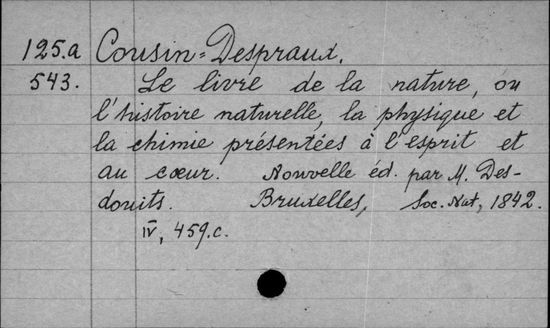 125.a Cousin=Despraux.
543. Le livre de la nature, ou
l'histoire naturelle, la physique et
la chimie présentées à l'esprit et
au cœur. Nouvelle éd. par M. Des-
douits. Bruxelles, Soc. Nat, 1842.
IV, 459.c.